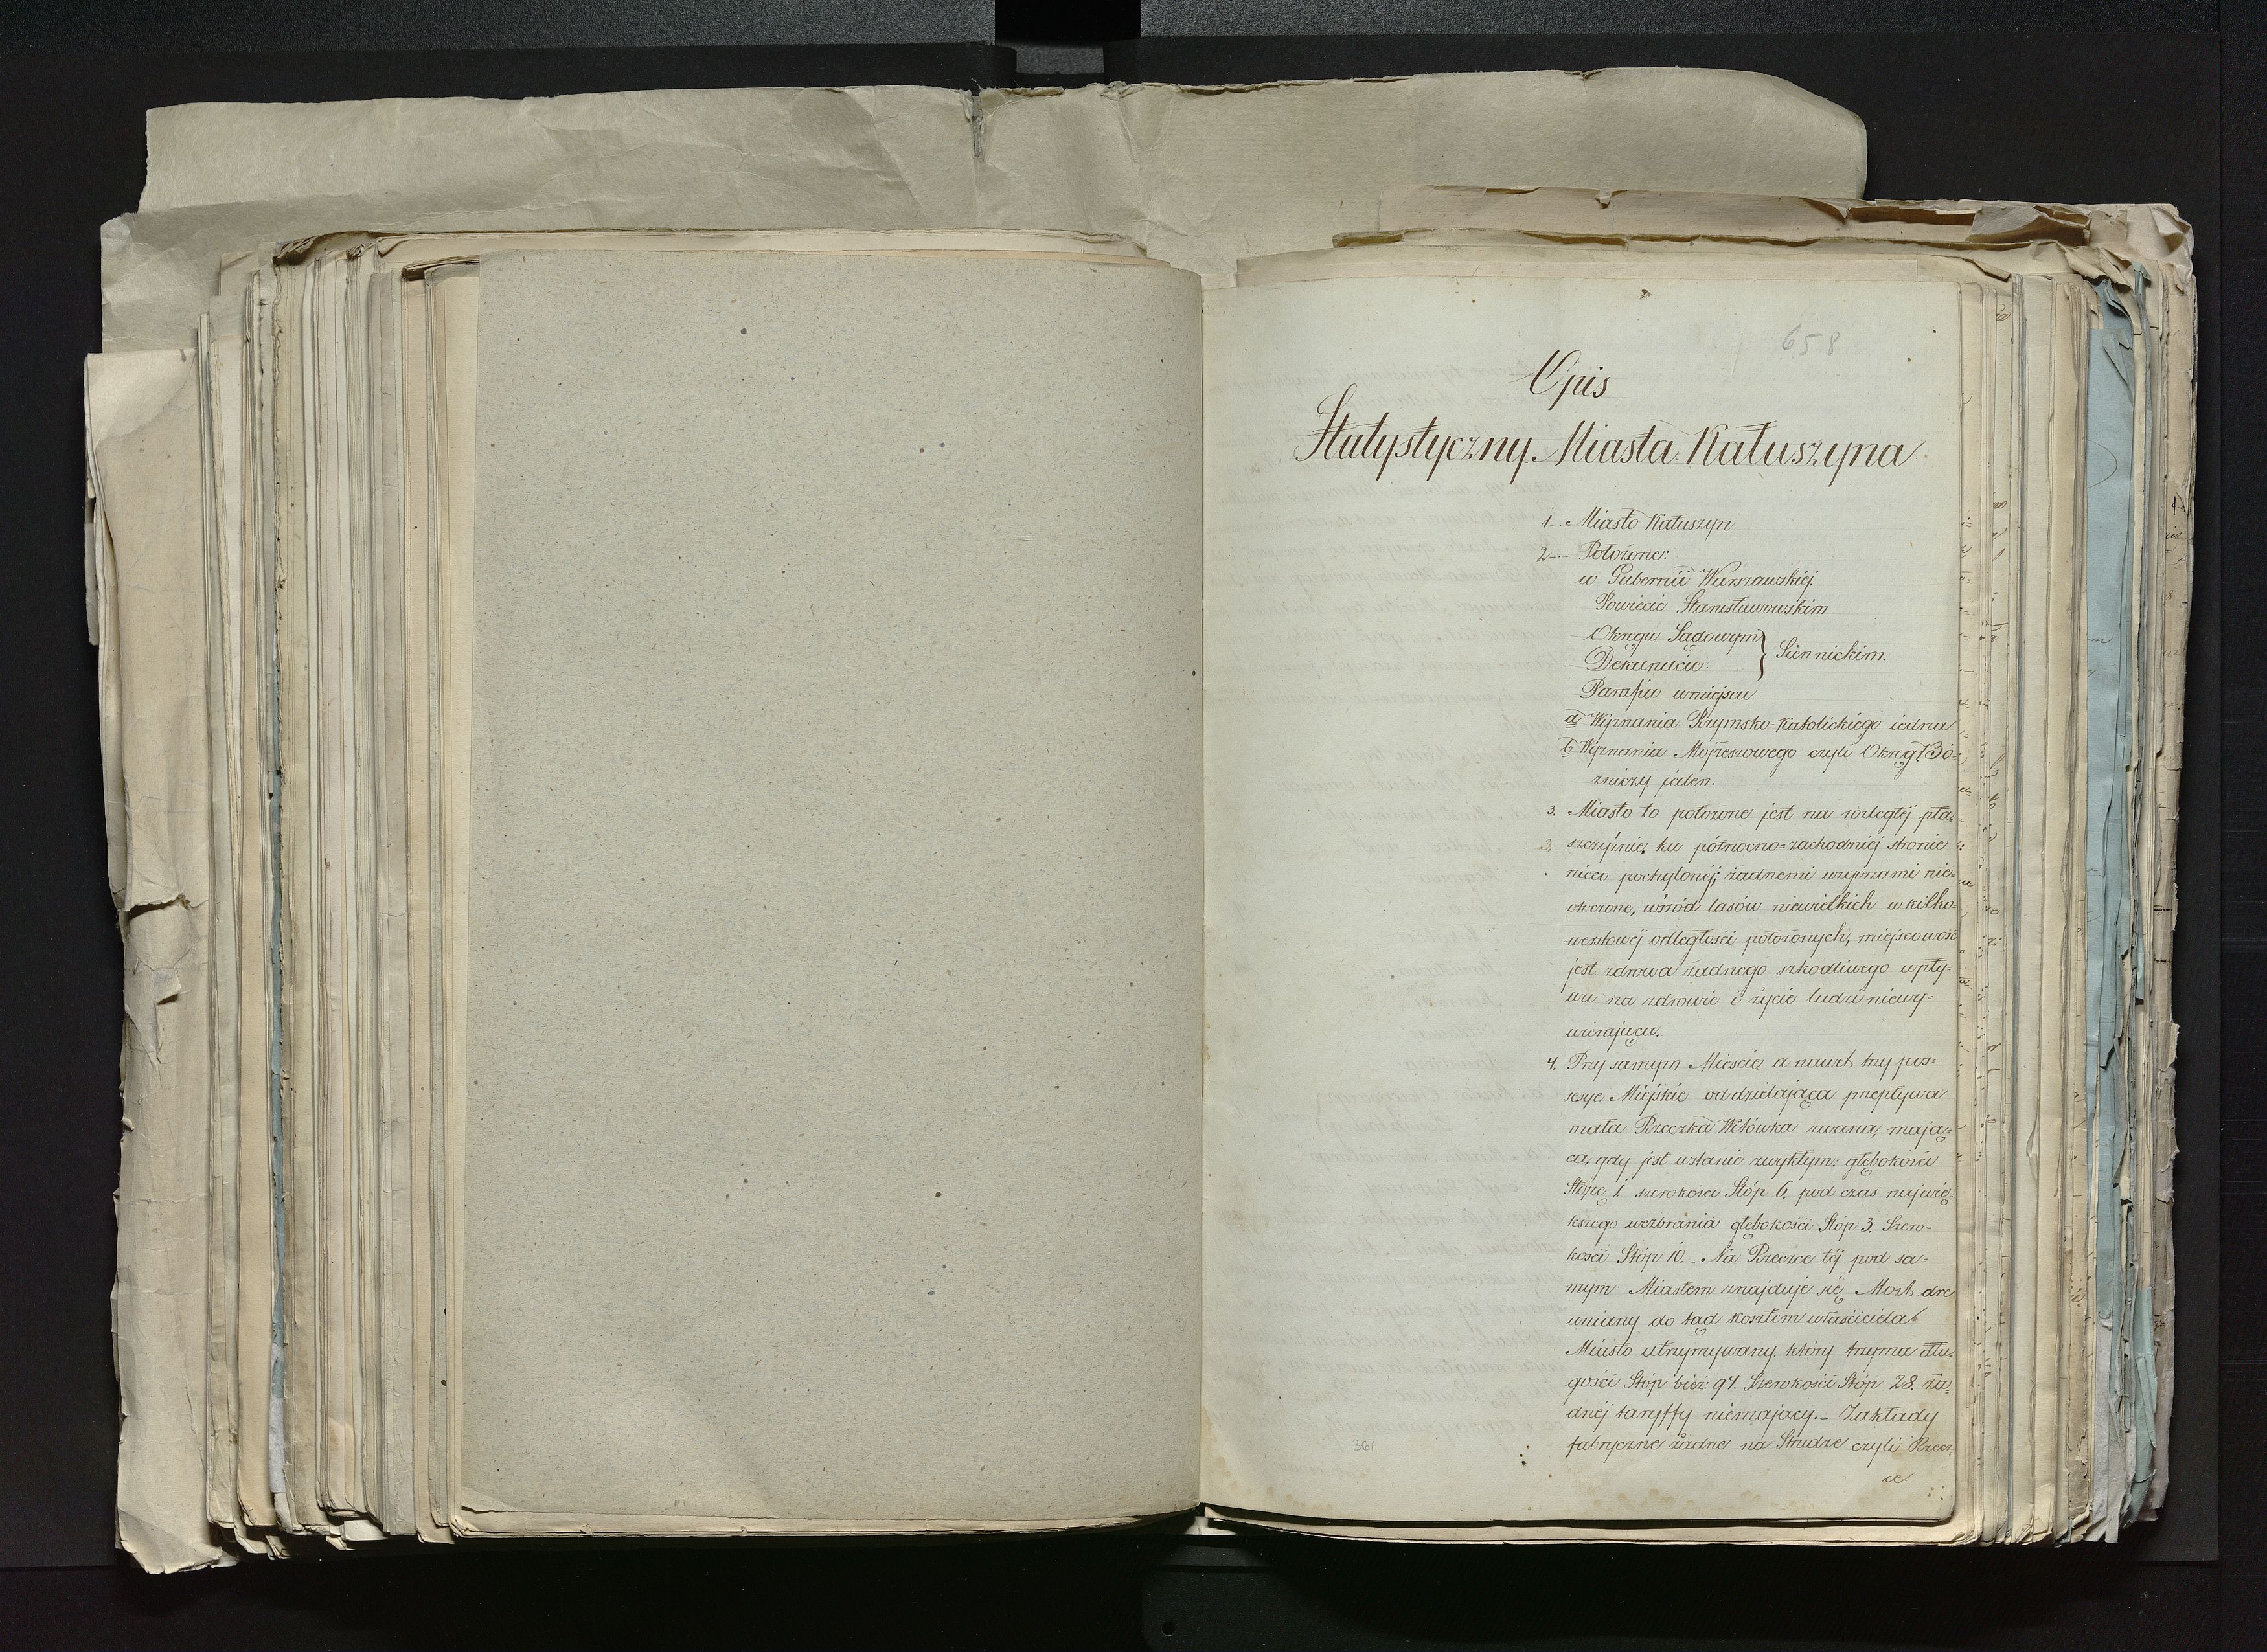 658
Opis
Statystyczny Miasta Kałuszyna
1. Miasto Kałuszyn
2. Położone:
w Gubernii Warszawskiéj
Powiecie Stanisławowskim
Okręgu Sądowym } Siennickim.
Dekanacie
Parafia w miejscu
a Wyznania Rzymsko=Katolickiego iedna
b Wyznania Mojżeszowego czyli Okręg Bó=
zniczy jeden.
3. Miasto to położone jest na rozległéj pła=
szczyźnie, ku północno=zachodniéj stronie
nieco pochylonéj; żadnemi wzgórzami nie=
otoczone, wśród lasów niewielkich w kilko=
=werstowéj odległości położonych, miejscowość
jest zdrowa żadnego szkodliwego wpły=
wu na zdrowie i życie ludzi niewy=
wierająca.
4. Przy samym Mieście, a nawet trzy pos=
sesye Miejskie oddzielająca przepływa
mała Rzeczka Witówka zwana, mają=
ca, gdy jest w stanie zwykłym: głębokości
Stopę 1 szerokości Stóp 6. pod czas najwię=
kszego wezbrania głębokości Stóp 3. Szero=
kości Stóp 10. — Na Rzeczce téj pod sa=
mym Miastem znajduje się Most dre
wniany do tąd kosztem właściciela
Miasta utrzymywany, który trzyma dłu=
gości Stóp bież: 94. Szerokości Stóp 28. ża=
dnéj taryffy niemający. — Zakłady
fabryczne żadne na Strudze czyli Rzecz=
ce
361.